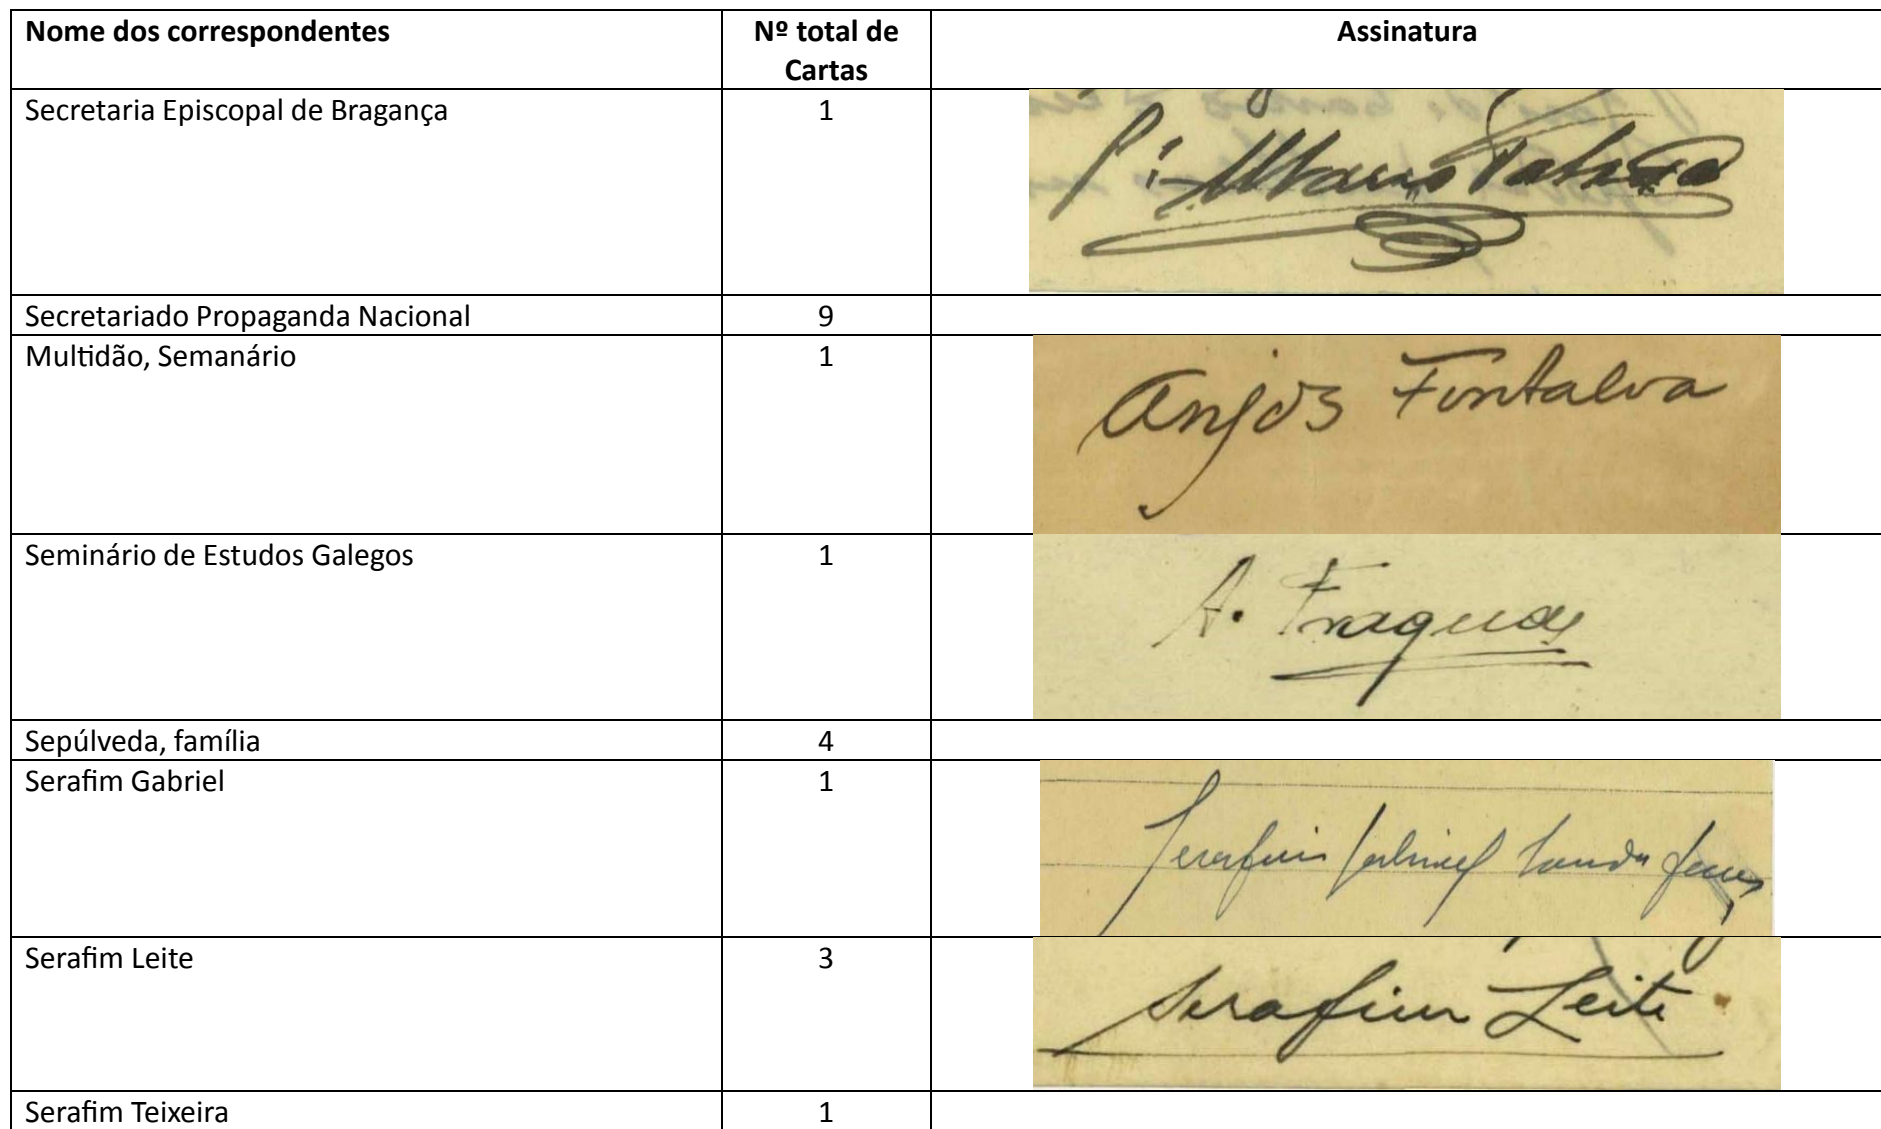 Nome dos correspondentes
Nº total de
Cartas
Assinatura
Secretaria Episcopal de Bragança
1
Secretariado Propaganda Nacional
9
Multidão, Semanário
1
Anjos Fontalva
Seminário de Estudos Galegos
1
A. Fraguas
Sepúlveda, família
4
Serafim Gabriel
1
Serafim Gabriel
Serafim Leite
3
Serafim Leite
Serafim Teixeira
1